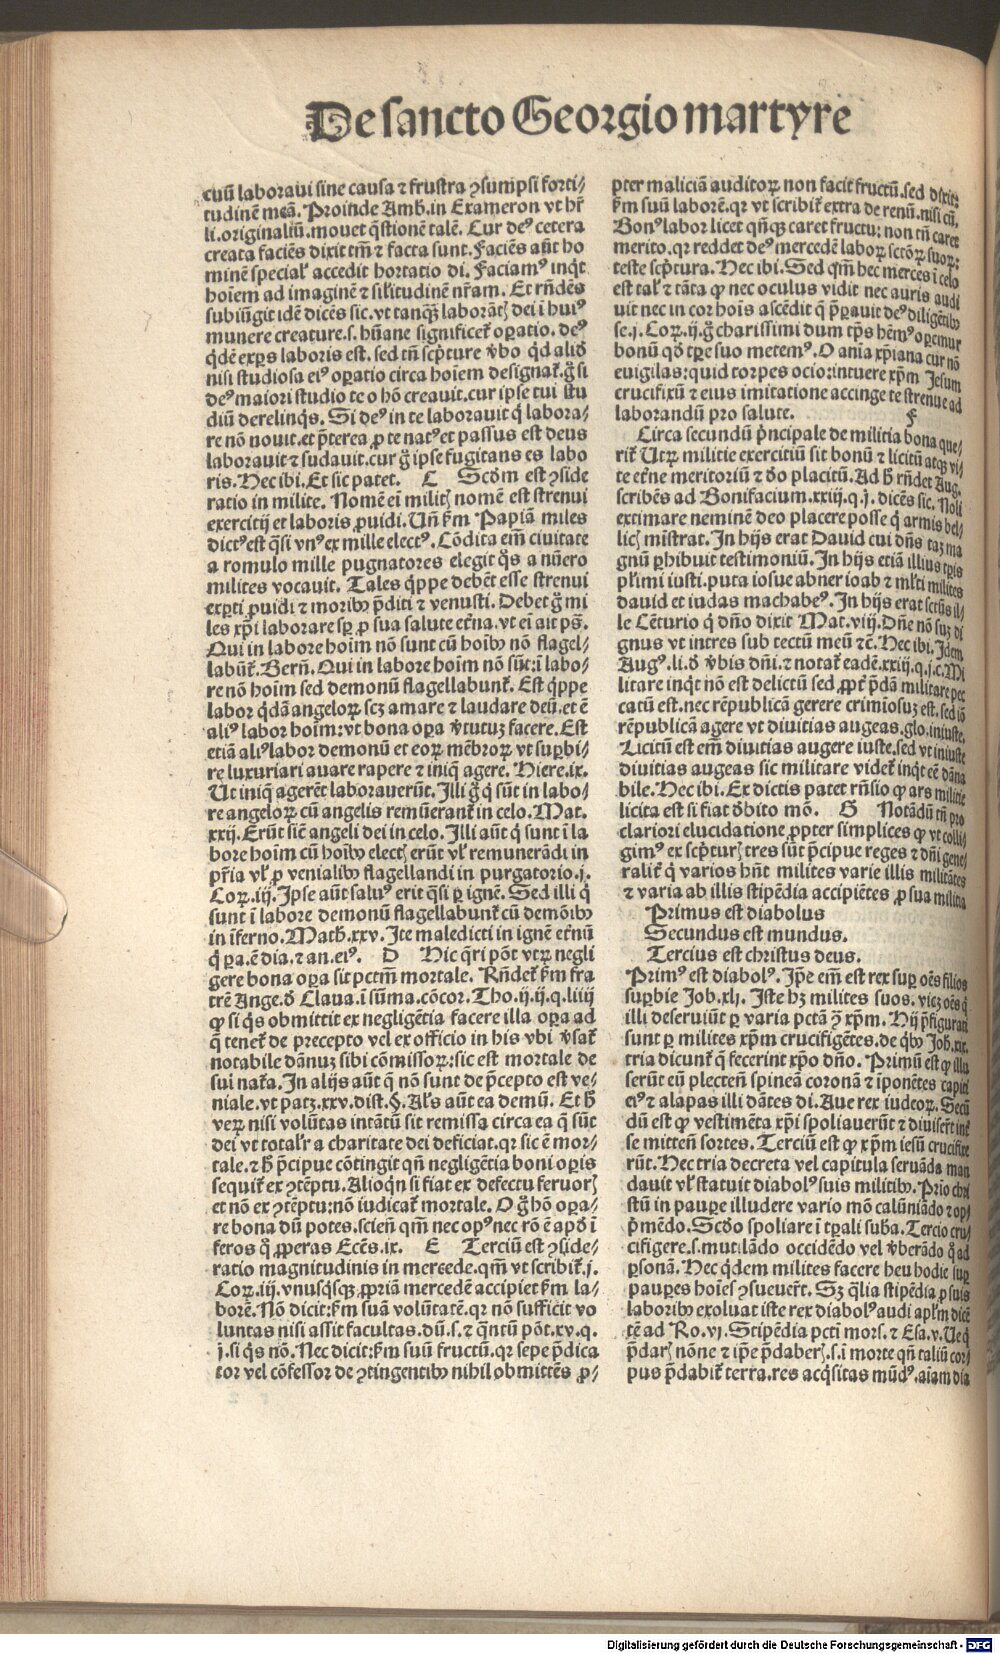 De sancto Georgio martyre
cuū laboraui sine causa ⁊ frustra ꝯsumpsi forti⸗
tudinē meā. Proinde Amb̄. in Exameron vt hr̄
li. originaliū. mouet q̄stionē talē. Cur deꝰ cetera
creata faciēs dixit tm̄ ⁊ facta sunt. Faciēs aūt ho
minē special̓ accedit hortatio di. Faciamꝰ inq̇t
hoīem ad imaginē ⁊ sil̓itudinē nr̄am. Et rn̄dēs
subiūgit idē dicēs sic. vt tanq̄ꝫ laborātꝭ dei ī huiꝰ
munere creature. s. hūane significet̓ oꝑatio. deꝰ
q̇dē exꝑs laboris est. sed tn̄ scp̄ture v̓bo q̇d aliđ
nisi studiosa eiꝰ oꝑatio circa hoīem designat̓. g̊ si
deꝰ maiori studio te o hō creauit. cur ipse tui stu
diū derelinq̇s. Si deꝰ in te laborauit q̇ labora⸗
re nō nouit. et p̄terea ꝓ te natꝰ et passus est deus
laborauit ⁊ sudauit. cur g̊ ipse fugitans es labo
ris. Hec ibi. Et sic patet. C Scd̓m est ꝯside
ratio in milite. Nomē ei militꝭ nomē est strenui
exercitij et laboris ꝓuidi. Un̄ ẜm Papiā miles
dictꝰ est q̄si vnꝰ ex mille electꝰ. Cōdita em̄ ciuitate
a romulo mille pugnatores elegit q̇s a nūero
milites vocauit. Tales q̇ppe debēt esse strenui
exꝑti ꝓuidi ⁊ moribꝰ p̄diti ⁊ venusti. Debet g̊ mi
les xp̄i laborare sꝑ ꝓ sua salute et̓na. vt ei ait pṡ.
Qui in labore hoīm nō sunt cū hoībꝰ nō flagel⸗
labūt̓. Bern̄. Qui in labore hoīm nō sūt: ī labo⸗
re nō hoīm sed demonū flagellabunt̓. Est q̇ppe
labor q̇dā angeloꝝ scꝫ amare ⁊ laudare deū. et ē
aliꝰ labor hoīm: vt bona oꝑa v̓tutuꝫ facere. Est
etiā aliꝰ labor demonū et eoꝝ mēbroꝝ vt suꝑbi⸗
re luxuriari auare rapere ⁊ iniq̄ agere. Hiere. ix.
Ut iniq̄ agerēt laborauerūt. Illi g̊ q̇ sūt in labo⸗
re angeloꝝ cū angelis remūerant̓ in celo. Mat.
xxij. Erūt sic̄ angeli dei in celo. Illi aūt q̇ sunt ī la
bore hoīm cū hoībꝰ electꝭ erūt vl̓ remunerādi in
pr̄ia vl̓ ꝓ venialibꝰ flagellandi in purgatorio. j.
Coꝝ. iij. Ipse aūt saluꝰ erit q̄si ꝑ ignē. Sed illi q̇
sunt ī labore demonū flagellabunt̓ cū demōibꝰ
in īferno. Math̄. xxv. Ite maledicti in ignē et̓nū
q̇ ꝑa. ē dia. ⁊ an. eiꝰ. D Hic q̄ri pōt vtꝝ negli
gere bona oꝑa sit pctm̄ mortale. Rn̄det̓ ẜm fra
trē Ange. đ Claua. ī sūma. cōcor. Tho. ij. ij. q. liiij
ꝙ si q̇s obmittit ex negligētia facere illa oꝑa ad
q̄ tenet̓ de precepto vel ex officio in his vbi v̓sat̓
notabile dānuꝫ sibi cōmissoꝝ: sic est mortale de
sui nat̓a. In alijs aūt q̄ nō sunt de p̄cepto est ve⸗
niale. vt patꝫ. xxv. dist. §. Al̓s aūt ea demū. Et h̄
veꝝ nisi volūtas intātū sit remissa circa ea q̄ sūt
dei vt total̓r a charitate dei deficiat. qr sic ē mor⸗
tale. ⁊ h̄ p̄cipue cōtingit qn̄ negligētia boni oꝑis
sequit̓ ex ꝯtēptu. Alioq̇n si fiat ex defectu feruorꝭ
et nō ex ꝯtēptu: nō iudicat̓ mortale. O g̊ hō oꝑa⸗
re bona dū potes. sciēn qm̄ nec opꝰ nec rō ē apđ ī
feros q̊ ꝓꝑas Eccēs. ix. E Terciū est ꝯside⸗
ratio magnitudinis in mercede. qm̄ vt scribit̓. j.
Coꝝ. iij. vnusq̇sqꝫ ꝓpriā mercedē accipiet ẜm la⸗
borē. Nō dicit: ẜm suā volūtatē. qr nō sufficit vo
luntas nisi assit facultas. dū. s. ⁊ q̄ntū pōt. xv. q.
j. si q̇s nō. Nec dicit: ẜm suū fructū. qr sepe p̄dica
tor vel cōfessor de ꝯtingentibꝰ nihil obmittēs ꝓ⸗
pter maliciā auditoꝝ non facit fructū. sed dixit:
ẜm suū laborē. qr vt scribit̓ extra de renū. nisi cū.
Bonꝰ labor licet qn̄qꝫ caret fructu: non tn̄ caret
merito. qr reddet deꝰ mercedē laboꝝ sctōꝝ suoꝝ:
teste scp̄tura. Hec ibi. Sed qm̄ hec merces ī celo
est tal̓ ⁊ tāta ꝙ nec oculus vidit nec auris audi
uit nec in cor hoīs ascēdit q̄ p̄ꝑauit deꝰ diligētibꝰ
se. j. Coꝝ. ij. g̊ charissimi dum tp̄s hēmꝰ oꝑemur
bonū qđ tꝑe suo metemꝰ. O aīa xp̄iana cur nō
euigilas: quid torpes ocio: intuere xp̄m Jesum
crucifixū ⁊ eius imitatione accinge te strenue ad
laborandū pro salute. F
Circa secundū p̄ncipale de militia bona que⸗
rit̓ Utꝝ militie exercitiū sit bonū ⁊ licitū atqꝫ vi⸗
te et̓ne meritoriū ⁊ đo placitū. Ad h̄ rn̄det Aug.
scribēs ad Bonifacium. xxiij. q. j. dicēs sic. Noli
extimare neminē deo placere posse q̇ armis bel⸗
licꝭ mīstrat. In hijs erat David cui dn̄s taꝫ ma
gnū ꝑhibuit testimoniū. In hijs etiā illius tꝑis
pl̓imi iusti. puta iosue abner ioab ⁊ ml̓ti milites
dauid et iudas machabeꝰ. In hijs erat sctūs il⸗
le Cēturio q̇ dn̄o dixit Mat. viij. Dn̄e nō suꝫ di
gnus vt intres sub tectū meū ⁊c̄. Hec ibi. Idem
Augꝰ. li. đ v̓bis dn̄i. ⁊ notat̓ eadē. xxiij. q. j. c. Mi
litare inq̇t nō est delictū sed ꝓpt̓ p̄dā militare pec
catū est. nec rēpublicā gerere crimīosuꝫ est. sed iō
rēpublicā agere vt diuitias augeas. glo. iniuste.
Licitū est em̄ diuitias augere iuste. sed vt iniuste
diuitias augeas sic militare videt̓ inq̇t cē dāna
bile. Hec ibi. Ex dictis patet rn̄sio ꝙ ars militie
licita est si fiat đbito mō. G Notādū tn̄ pro
clariori elucidatione ꝓpter simplices ꝙ vt colli
gimꝰ ex scp̄turꝭ tres sūt p̄cipue reges ⁊ dn̄i gene
ralit̓ q̇ varios hn̄t milites varie illis militātes
⁊ varia ab illis stipēdia accipiētes ꝓ sua militia
Primus est diabolus
Secundus est mundus.
Tercius est christus deus.
Primꝰ est diabolꝰ. Ip̄e em̄ est rex suꝑ oēs filios
suꝑbie Job. xlj. Iste hꝫ milites suos. vicꝫ oēs q̇
illi deseruiūt ꝑ varia pctā ꝯ̄ xp̄m. Hij p̄figurati
sunt ꝑ milites xp̄m crucifigētes. de q̇bꝰ Joh̄. xix.
tria dicunt̓ q̄ fecerint xp̄o dn̄o. Primū est ꝙ illu
serūt eū plecten̄ spineā coronā ⁊ īponētes capiti
eiꝰ ⁊ alapas illi dātes di. Aue rex iudeoꝝ. Secū
dū est ꝙ vestimēta xp̄i spoliauerūt ⁊ diuiser̄t int̓
se mitten̄ sortes. Terciū est ꝙ xp̄m iesū crucifixe
rūt. Hec tria decreta vel capitula seruāda man
dauit vl̓ statuit diabolꝰ suis militibꝰ. Prīo chri
stū in pauꝑe illudere vario mō calūniādo ⁊ op⸗
p̄mēdo. Scđo spoliare ī tꝑali suba. Tercio cru⸗
cifigere. s. mutilādo occidēdo vel v̓berādo q̊ ad
ꝑsonā. Hec q̇dem milites facere heu hodie suꝑ
pauꝑes hoīes ꝯsueuer̄t. Sꝫ q̄lia stipēdia ꝓ suis
laboribꝰ exoluat iste rex diabolꝰ audi apl̓m dicē
tē ad Ro. vj. Stipēdia pcti mors. ⁊ Esa. v. Ue q̇
p̄darꝭ nōne ⁊ ip̄e p̄daberꝭ. s. ī morte qn̄ taliū cor⸗
pus p̄dabit̓ terra. res acq̇sitas mūdꝰ. aīam dia
Digitalisierung gefördert durch die Deutsche Forschungsgemeinschaft - DFG